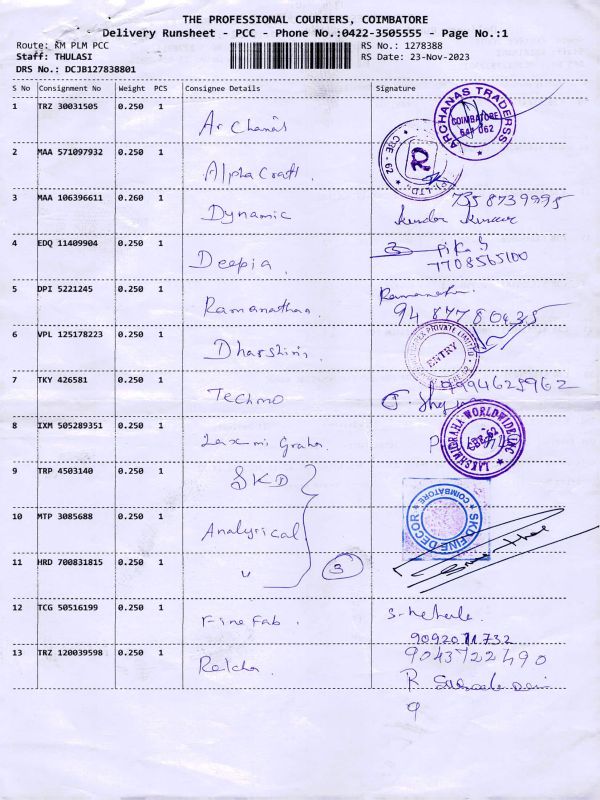 THE PROFESSIONAL COURIERS, COIMBATORE
Delivery Runsheet - PCC - Phone No.:0422-3505555 - Page No.:1
Route: RM PLM PCC RS No.: 1278388
Staff: THULASI RS Date: 23-Nov-2023
DRS No.: DCJB127838801
S No Consignment No Weight PCS Consignee Details Signature
1 TRZ 30031505 0.250 1 Archanas ARCHANAS TRADERSS COIMBATORE 641 062
2 MAA 571097932 0.250 1 Alpha Craft. CBE - 62 (P) LTD.,
3 MAA 106396611 0.260 1 Dynamic 7358739995
4 EDQ 11409904 0.250 1 Deepia. 7708565100
5 DPI 5221245 0.250 1 Ramanathan. 9487780435
6 VPL 125178223 0.250 1 Dharshini. PRIVATE LIMITED ENTRY
7 TKY 426581 0.250 1 Techno 9994625962
8 IXM 505289351 0.250 1 Laxmi Graha LAKSHMI GRAHA WORLDWIDE INC CBE-62
9 TRP 4503140 0.250 1 SKD
10 MTP 3085688 0.250 1 Analyrical SKD FINE DECOR COIMBATORE
11 HRD 700831815 0.250 1 " 3
12 TCG 50516199 0.250 1 Fine Fab.
9092011732
13 TRZ 120039598 0.250 1 9043722490